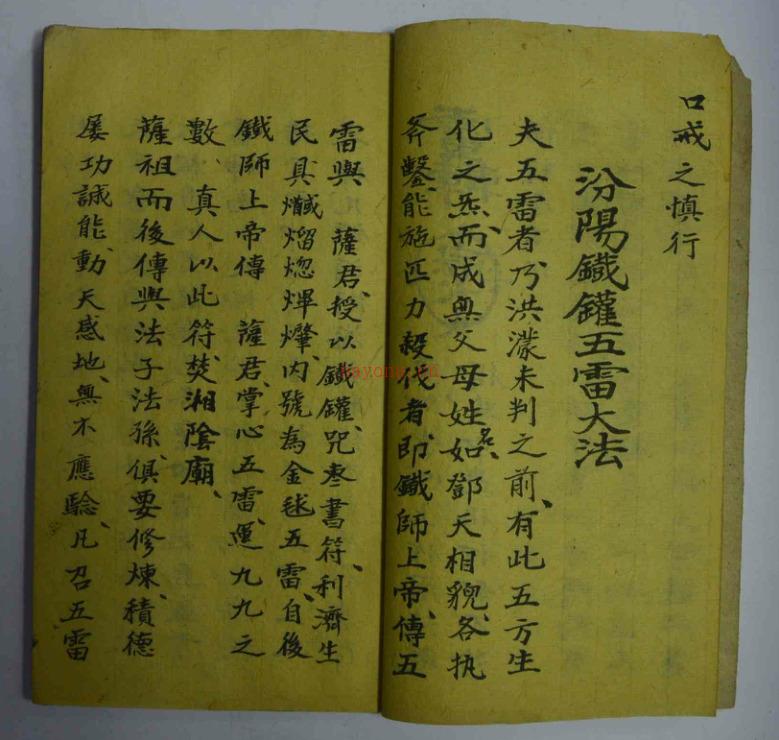 口戒之慎行
汾陽鐵鑵五雷大法
夫五雷者乃洪濛未判之前、有此五方生
化之炁、而成無父母姓名、如鄧天相貌、各执
斧鑿、能施匹力殺伐者、即鐵師上帝、傳五
雷與 薩君、授以鐵鑵、咒枣書符、利濟生
民、具熠㷓煇㸅、内號為金毬五雷、自後
鐵師上帝傳 薩君、掌心五雷、運九九之
數、真人以此符焚湘陰廟、
薩祖而後傳與法子法孫、俱要修煉、積德
屡功誠能、動天感地、無不應驗、凡召五雷